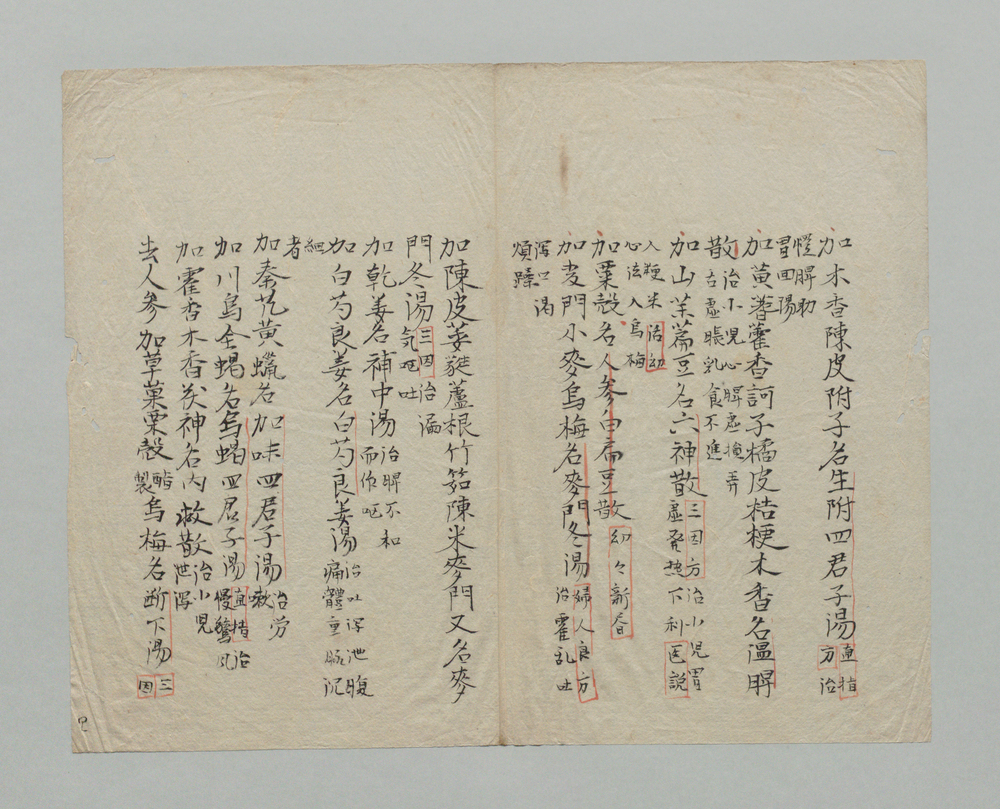 加木香陳皮附子名生附四君子湯直指方治
慢脾助胃回陽
加黄蓍藿香訶子橘皮桔梗木香名温脾
散治小児心脾虚㨫弄舌虚脹乳食不進
加山茱萹豆名六神散三因方治小児胃虚発熱下利医説
入粳米治幼心法入烏梅
加粟殻名人参白扁豆散幼々新書
加麦門小麥烏梅名麥門冬湯婦人良方治霍乱吐
瀉口渇煩躁
加陳皮萎蕤蘆根竹筎陳米麥門又名麥
門冬湯三因治漏気呕吐
加乾姜名補中湯治脾不和而作呕
加白芍良姜名白芍良姜湯治吐瀉泄腹痛體重脈沉
細者
加秦艽黄蠟名加味四君子湯治労嗽
加川烏全蝎名烏蝎四君子湯直指治慢驚風
加霍香木香茯神名内救散治小児泄瀉
去人参加草菓粟殻醋製烏梅名断下湯三因